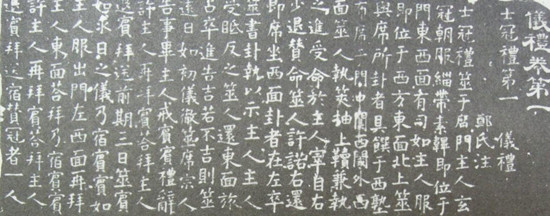 儀禮卷第一
士冠禮第一　儀禮
鄭氏注
士冠禮筮于庿門主人玄
冠朝服緇帶素韠即位于
門東西面有司如主人服
即位于西方東面北上筮
與席所卦者具饌于西塾
布席于門中闑西閾外西
面筮人執筴抽上韇兼執
之進受命於主人宰自右
少退贊命筮人許諾右還
即席坐西面卦者在左卒
筮書卦執以示主人主人
受眡反之筮人還東面旅
占卒進告吉若不吉則筮
遠日如初儀徹筮席宗人
告事畢主人戒賓賓禮辭
許主人再拜賓荅拜主人
退賓拜送前期三日筮賓
如求日之儀乃宿賓賓如
主人服出門左西面再拜
主人東面荅拜乃宿賓賓
許主人再拜賓荅拜主人
退賓拜送宿贊冠者一人